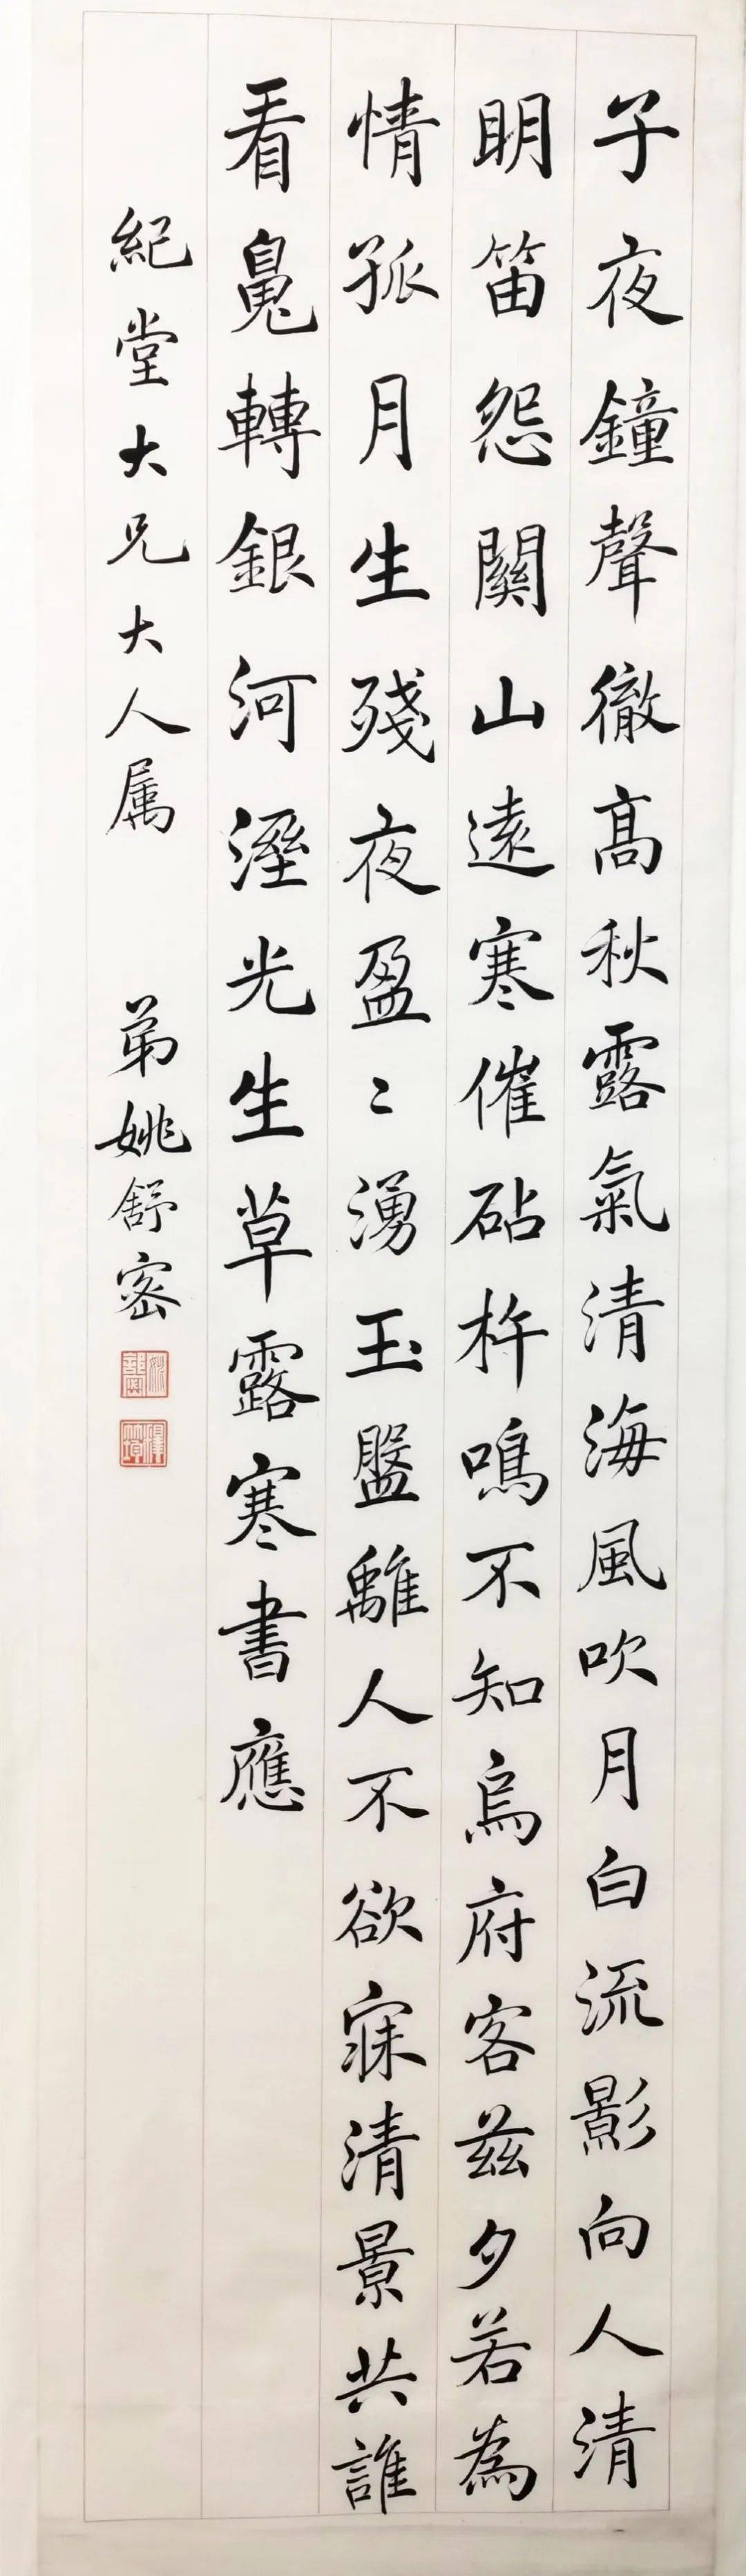 子夜鐘聲徹髙秋露氣清海風吹月白流影向人清
眀笛怨關山遠寒催砧杵鳴不知烏府客茲夕若為
情孤月生殘夜盈〻湧玉盤離人不欲寐清景共誰
看魄轉銀河溼光生草露寒書應
紀堂大兄大人属
弟姚舒密